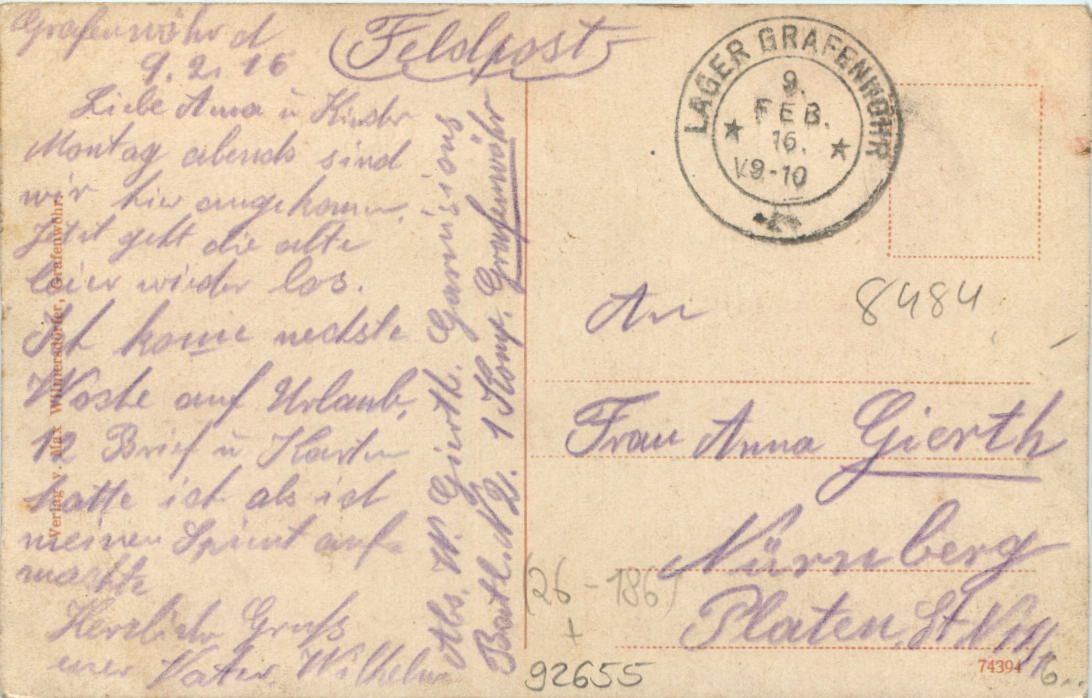 Grafenwöhr d
9.2.16
Feldpost
Liebe Anna u Kinder
Montag abends sind
wir hier angekomen.
Jetzt geht die alte
leier wieder los.
Ich kome nechste
Woche auf Urlaub,
12 Brief u Karten
hatte ich als ich
meinen Spint auf-
machte
Herzliche Gruß
euer Vater Wilhelm
Abs. W. Gierth. Garnisions
Batl. N 2. 1 Komp. Grafenwöhr
Verlag v. Max Wilmersdörfer, Grafenwöhr.
LAGER GRAFENWÖHR
9.
FEB.
16.
V9-10
8484
An
Frau Anna Gierth
Nürnberg
Platen. St
(26-186)
92655
74394